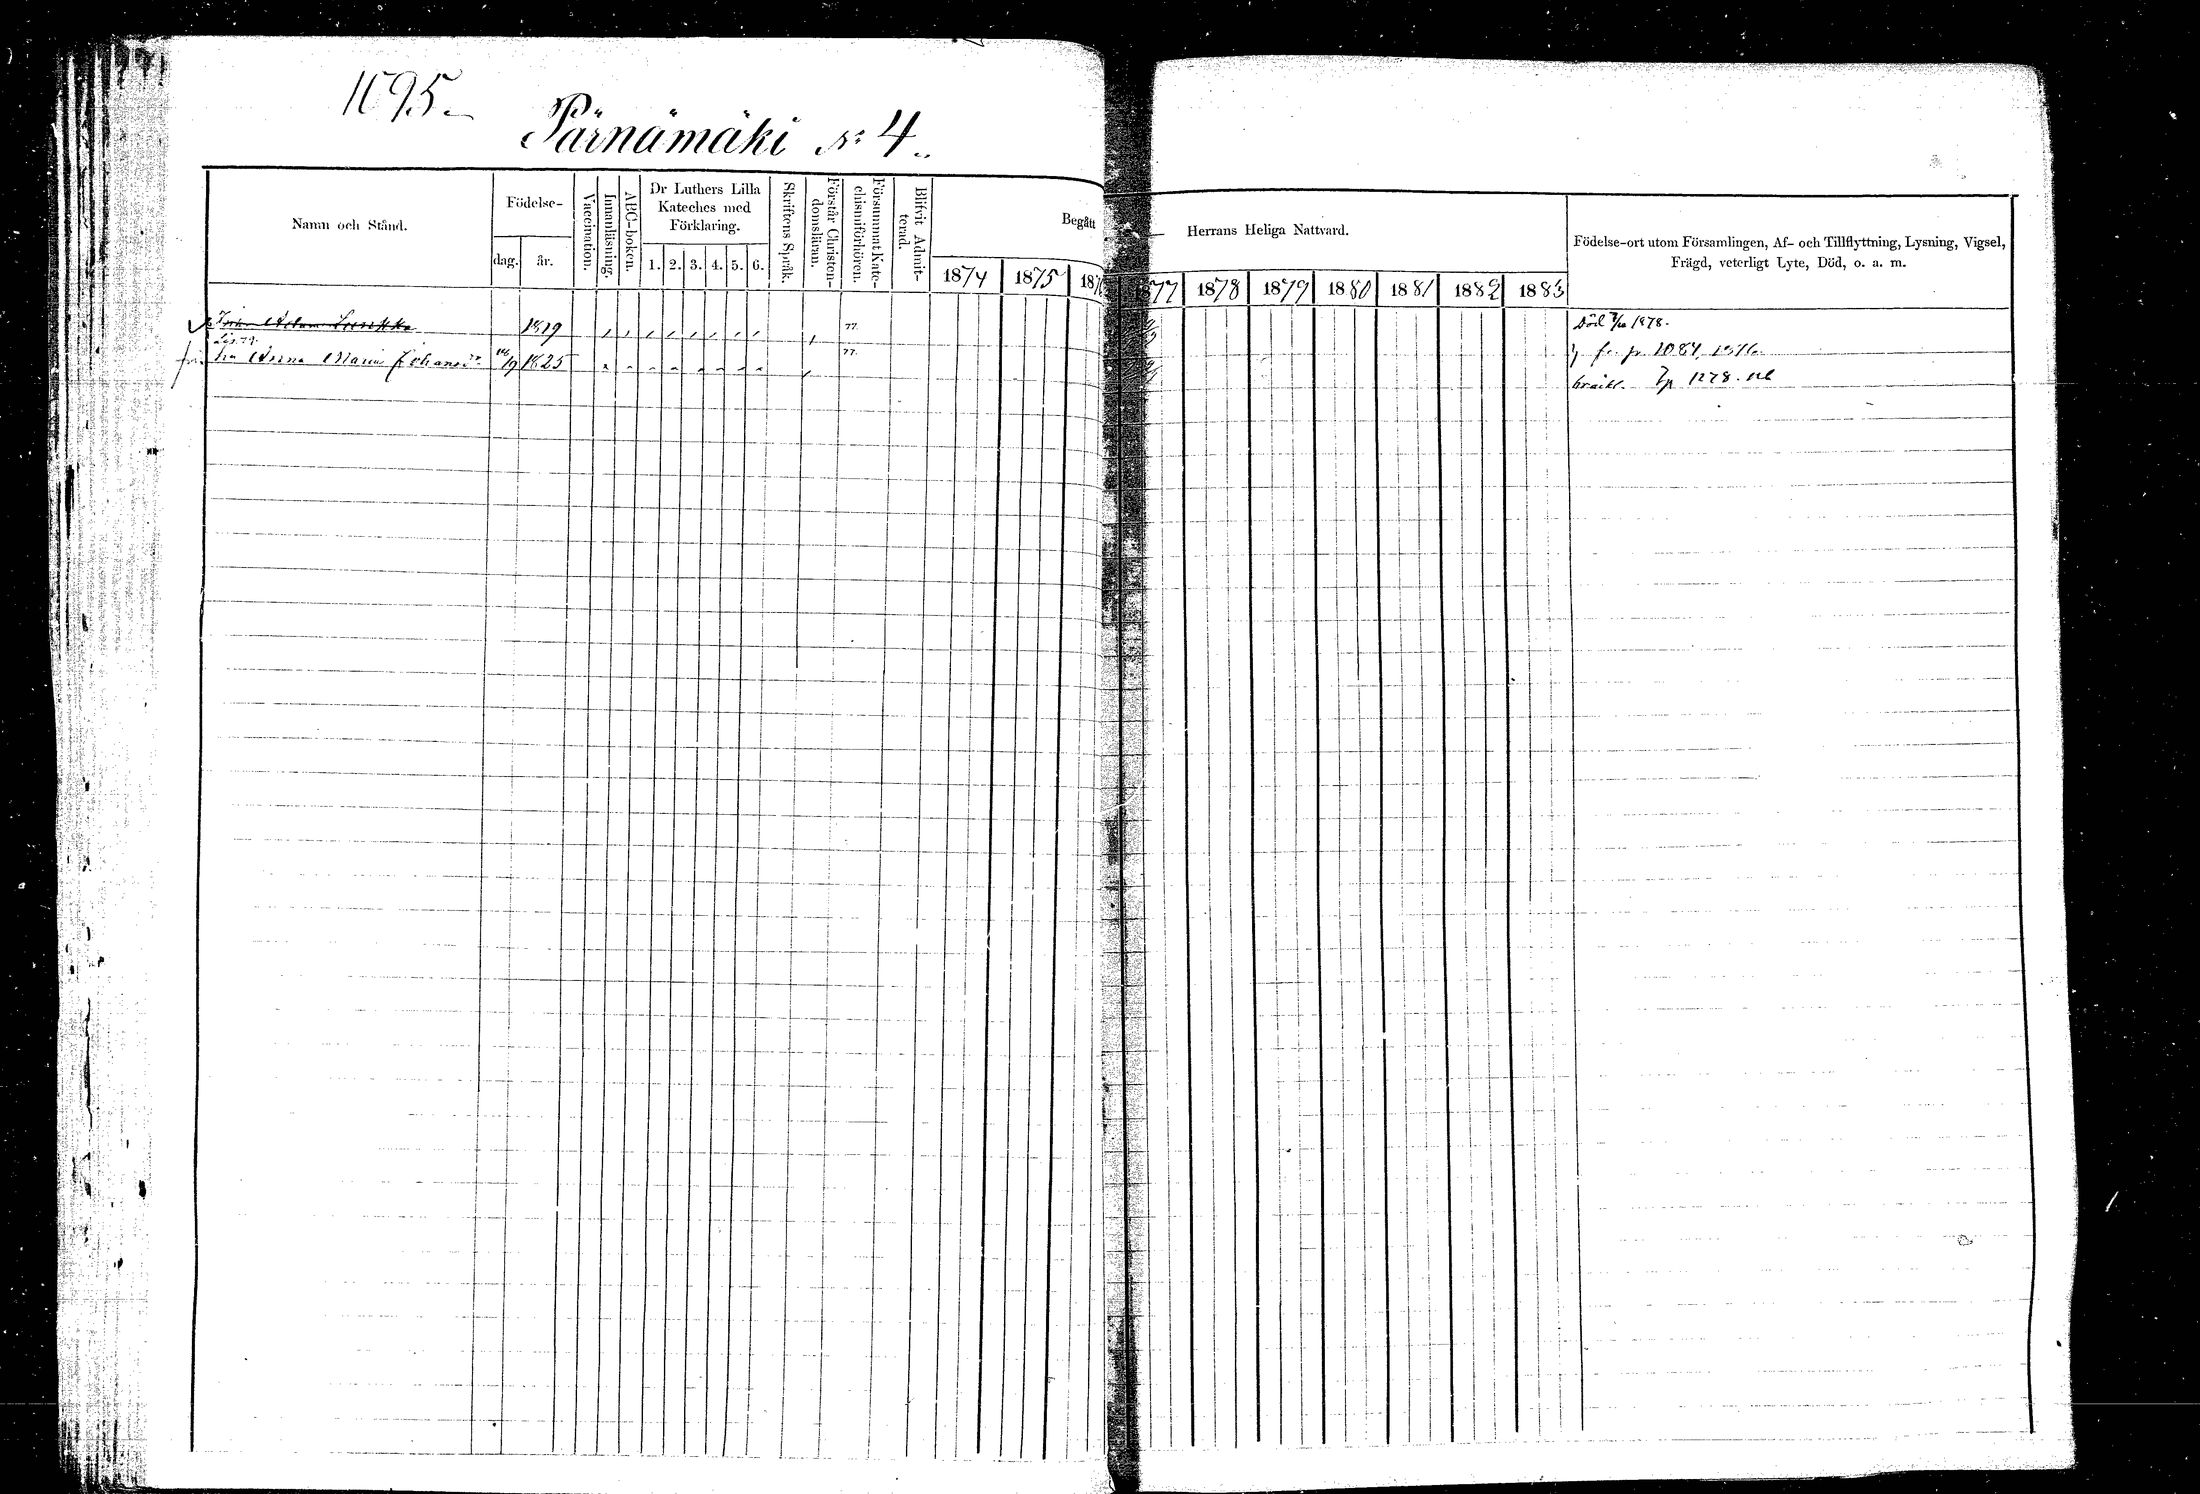 1095.
Pärnämäki N:o 4.
Namn och Stånd.
Födelse-
dag.
år.
Vaccination.
Innanläsning.
ABC-boken.
Dr Luthers Lilla
Kateches med
Förklaring.
1. 2. 3. 4. 5. 6.
Skriftens Språk.
Förstår Christen-
domsläran.
Försummat Kate-
chismiförhören.
Blifvit Admit-
terad.
Begått
Herrans Heliga Nattvard.
1874 1875 187
1877 1878 1879 1880 1881 1882 1883
Födelse-ort utom Församlingen, Af- och Tillflyttning, Lysning, Vigsel,
Frägd, veterligt Lyte, Död, o. a. m.
Adam 1819 77. Död 1878.
Anna Maria Johansdr 1825 77. fr. p. 1084,
1278.